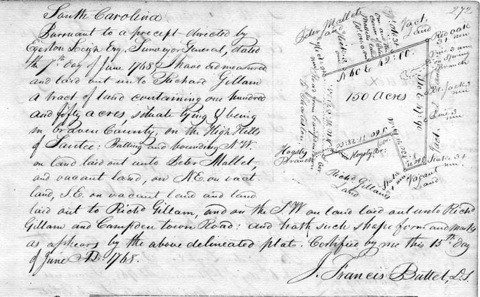 South Carolina
272
Pursuant to a precept directed by
Egerton Leigh Esq. Surveyor General, dated
the 7th day of June 1768. I have admeasured
and laid out unto Richard Gillam
a tract of land containing one hundred
and fifty acres, situate lying & being
in Craven County, on the High Hills
of Santee: Butting and bounding N.W.
on land laid out unto Peter Mallet,
and vacant land, on N.E. on vact.
land, S.E. on vacant land and land
laid out to Richd Gillam, and on the S.W. on land laid out unto Richd
Gillam and Campden town Road: and hath such shape form and marks
as appears by the above delineated plat. Certified by me this 15th Day
of June AD 1768.
J. Francis Buttet, D.S.
Peter Mallets
Vact. Land
150 Acres
Richd Gillams
Land
Vacant
Land